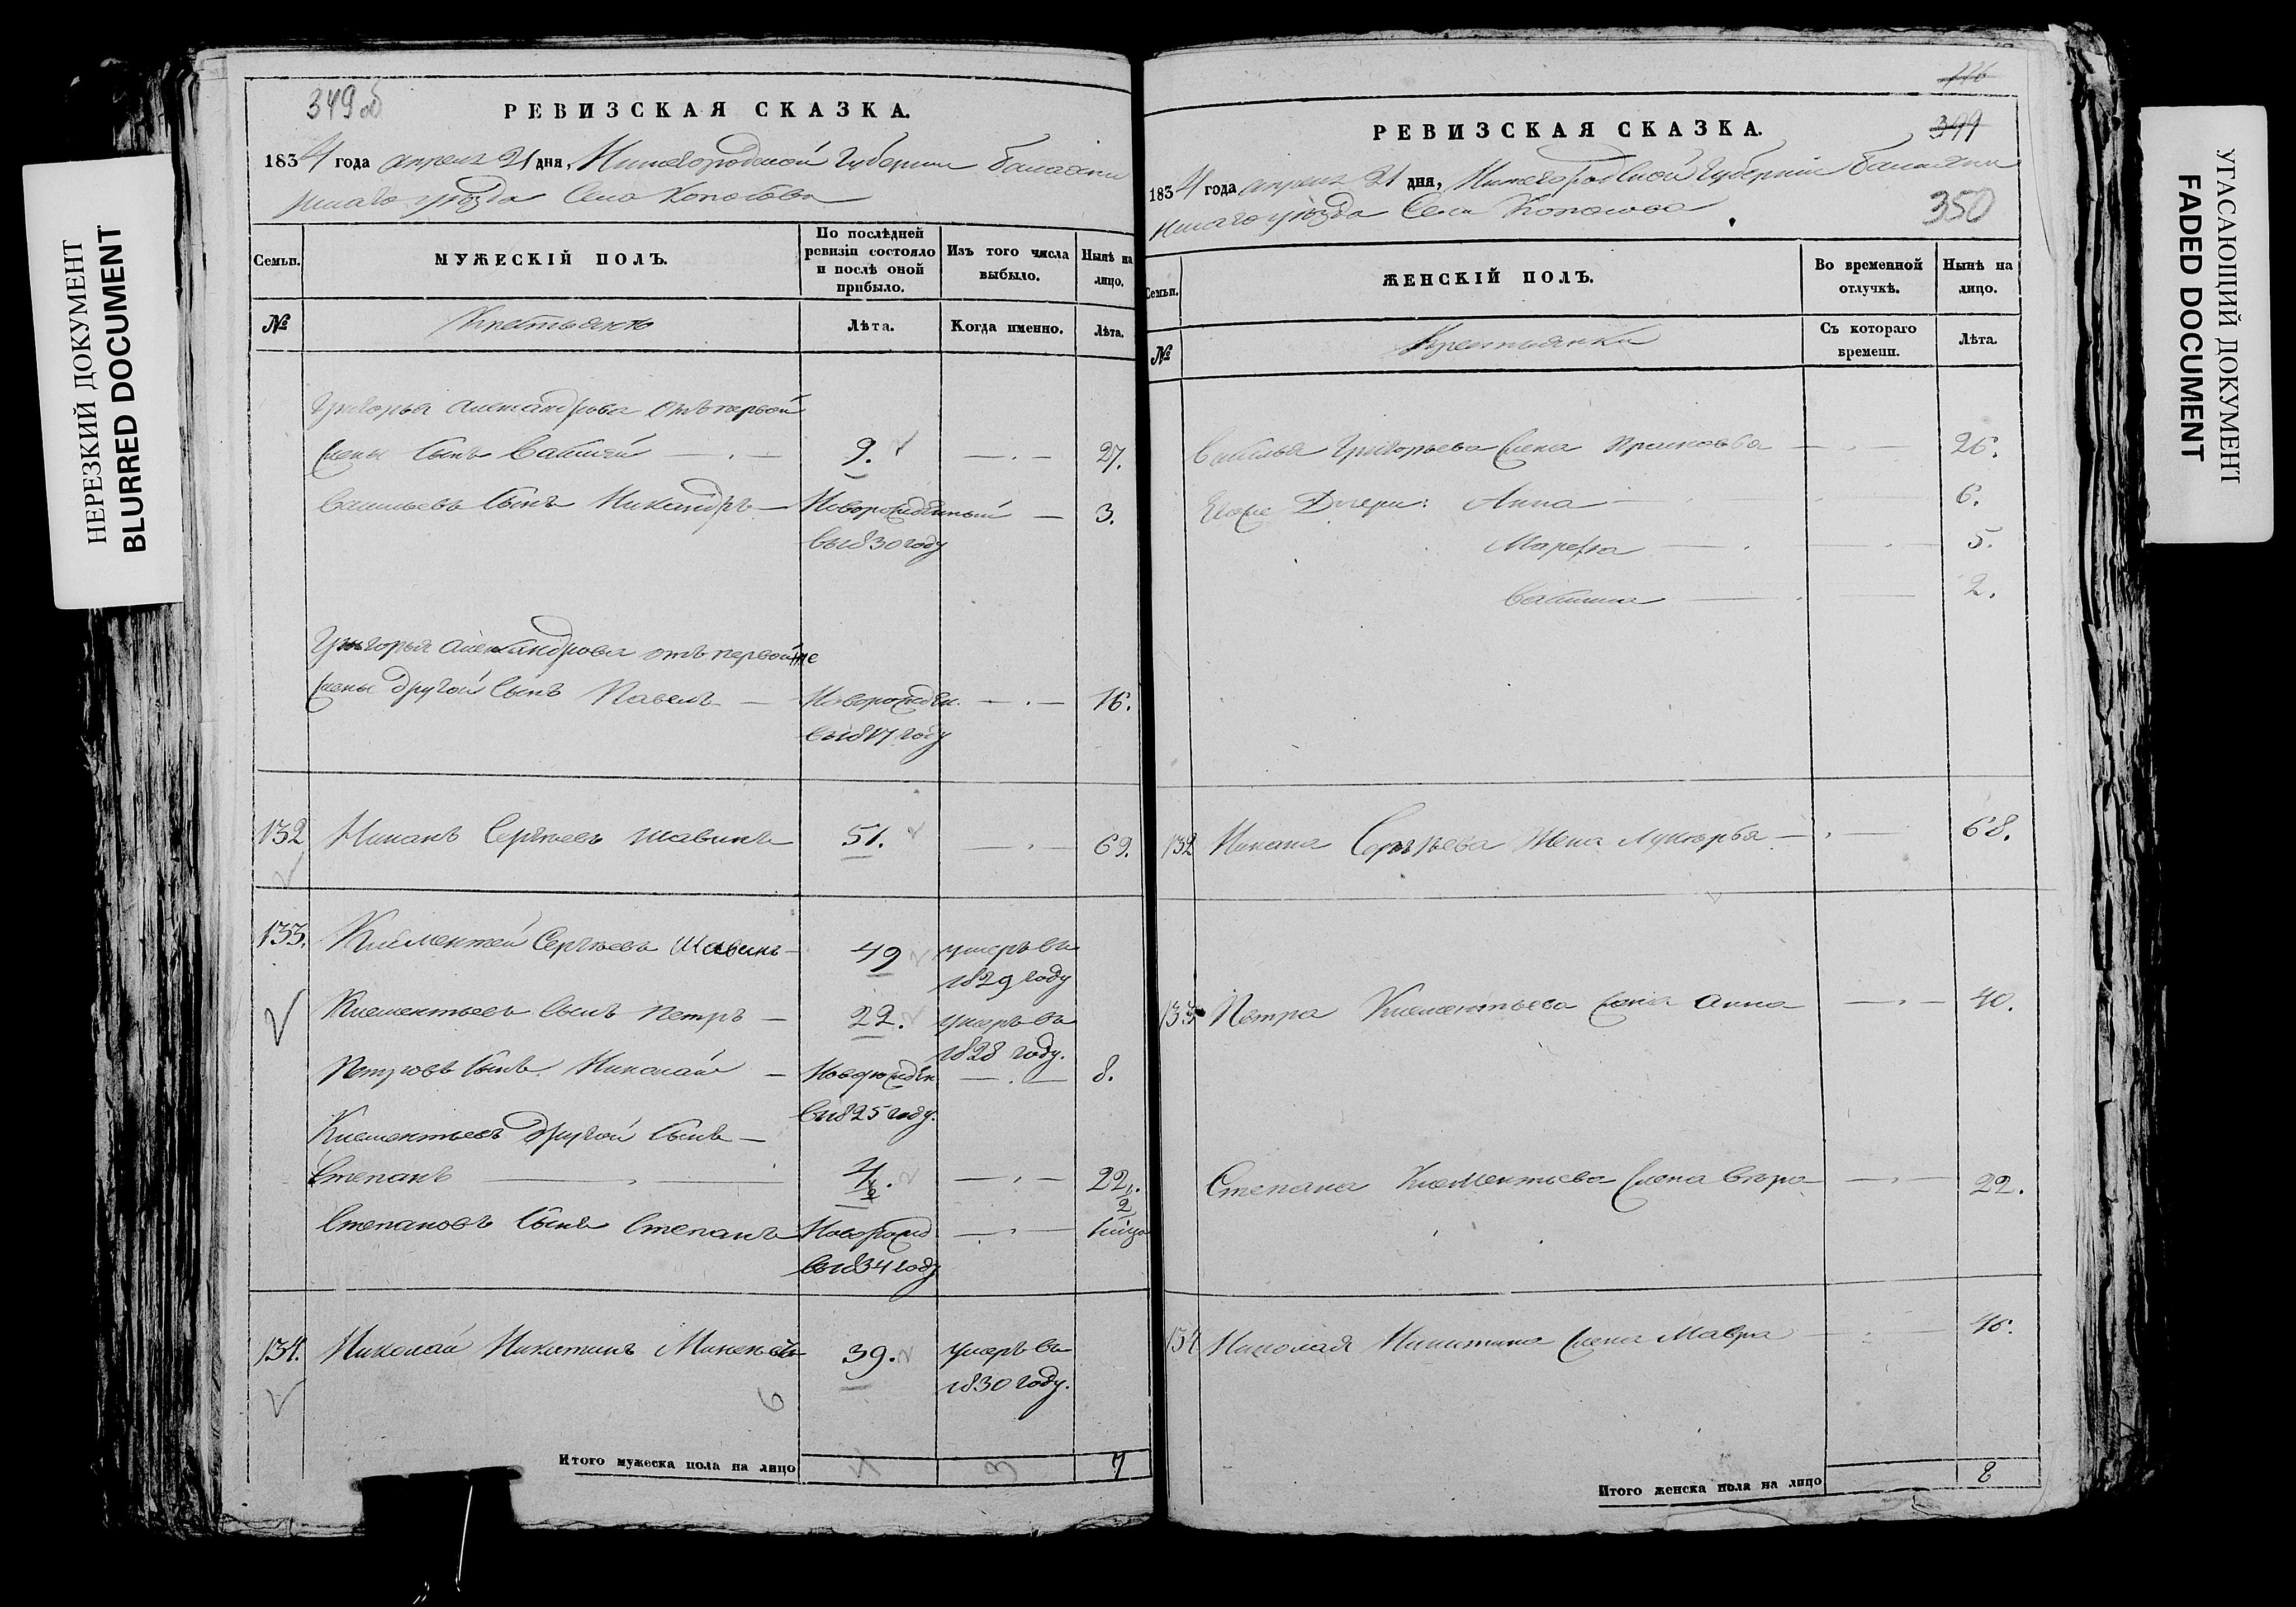 НЕРЕЗКИЙ ДОКУМЕНТ
BLURRED DOCUMENT
349 об
РЕВИЗСКАЯ СКАЗКА.
1834 года апреля 21 дня, Нижегородской Губернии Балахни
нскаго уезда Села Копосова
Семьи. МУЖЕСКІЙ ПОЛЪ. По послѣдней ревизіи состояло и послѣ оной прибыло. Изъ того числа выбыло. Нынѣ на лицо.
№ Крестьяне Лѣта. Когда именно. Лѣта.
Григорья Александрова отъ первой
жены сынъ Василей 9. 27.
Васильевъ сынъ Никандръ Новорожденный 3.
въ 1830 году
Григорья Александрова отъ первой же
жены другой сынъ Павелъ Новорожден. 16.
въ 1817 году
132 Сергѣевъ Шавинъ 51. 69.
133. Климентей Сергѣевъ Шавинъ 49 умеръ въ
1829 году
Клементьевъ сынъ Петръ 22. умеръ въ
1828 году.
Петровъ сынъ Николай Новорожден 8.
въ 1825 году.
Клементьевъ другой сынъ
Степанъ 4 1/2. 22 1/2.
Степановъ сынъ Степанъ Новорожд
въ 1834 году
134. Николай Никитинъ 39. умеръ въ
1830 году.
6
Итого мужеска пола на лицо 4 3 7
399
350
РЕВИЗСКАЯ СКАЗКА.
1834 года апреля 21 дня, Нижегородской Губерніи Балахни
нскаго уѣзда Села Копосова
Семьи. ЖЕНСКІЙ ПОЛЪ. Во временной отлучкѣ. Нынѣ на лицо.
№ Крестьянки Съ котораго времени. Лѣта.
Василья Григорьева жена Прасковья 26.
Егоже Дочери: Анна 6.
Марефа 5.
2.
132 Сергѣева Жена Лукерья 68.
133 Петра Клементьева жена Анна 40.
Степана Клементьева жена Вѣра 22.
134 Николая Никитина жена Мавра 46.
Итого женска пола на лицо 8
УГАСАЮЩИЙ ДОКУМЕНТ
FADED DOCUMENT